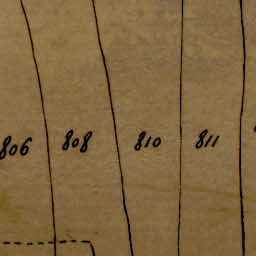 806 808 810 811